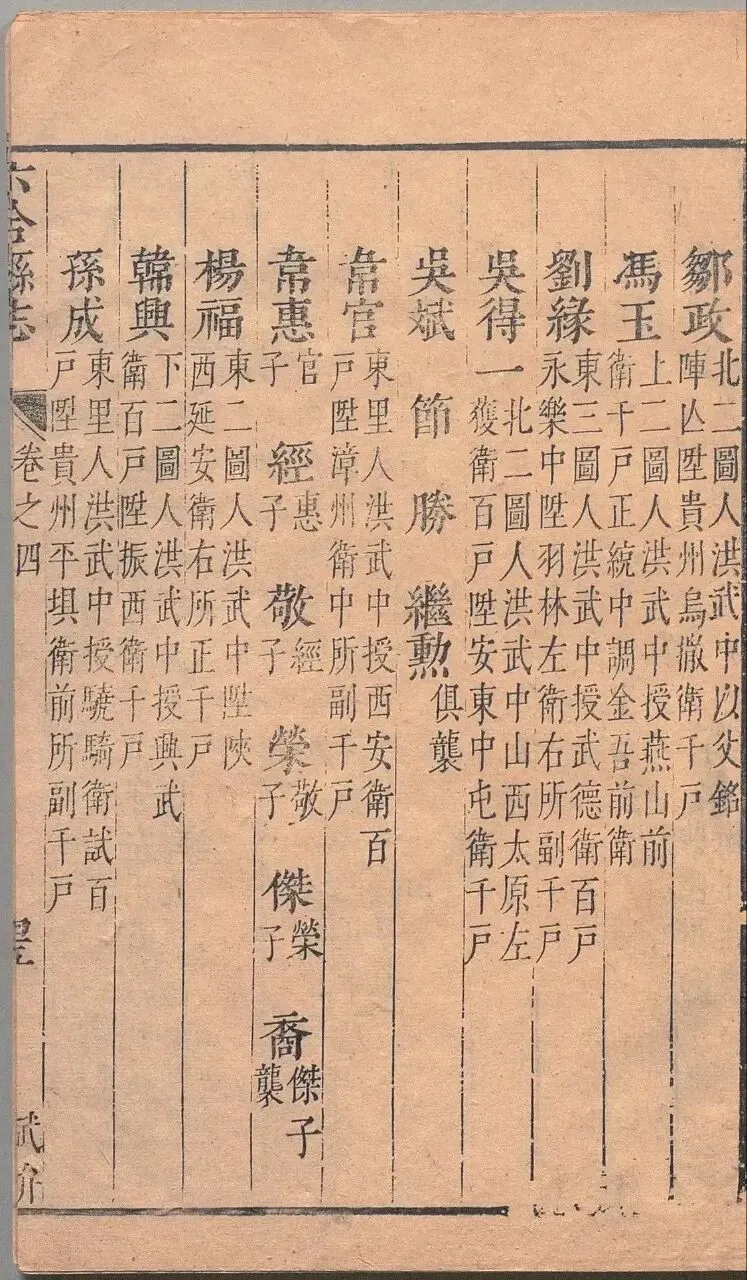 鄒政 北二圖人洪武中以父銘陣亾陞貴州烏撒衛千戸
馮玉 上二圖人洪武中授燕山前衛千戸正統中調金吾前衛
劉緣 東三圖人洪武中授武德衛百戸永樂中陞羽林左衛右所副千戸
吳得一 北二圖人洪武中山西太原左獲衛百戸陞安東中屯衛千戸
吳斌 節 勝 繼勲 俱襲
韋官 東里人洪武中授西安衛百戸陞漳州衛中所副千戸
韋惠 官子 經 惠子 敬 經子 榮 敬子 傑 榮子 裔 傑子襲
楊福 東二圖人洪武中陞陜西延安衛右所正千戸
韓興 下二圖人洪武中授興武衛百戸陞振西衛千戸
孫成 東里人洪武中授驍騎衛試百戸陞貴州平埧衛前所副千戸
六合縣志 卷之四